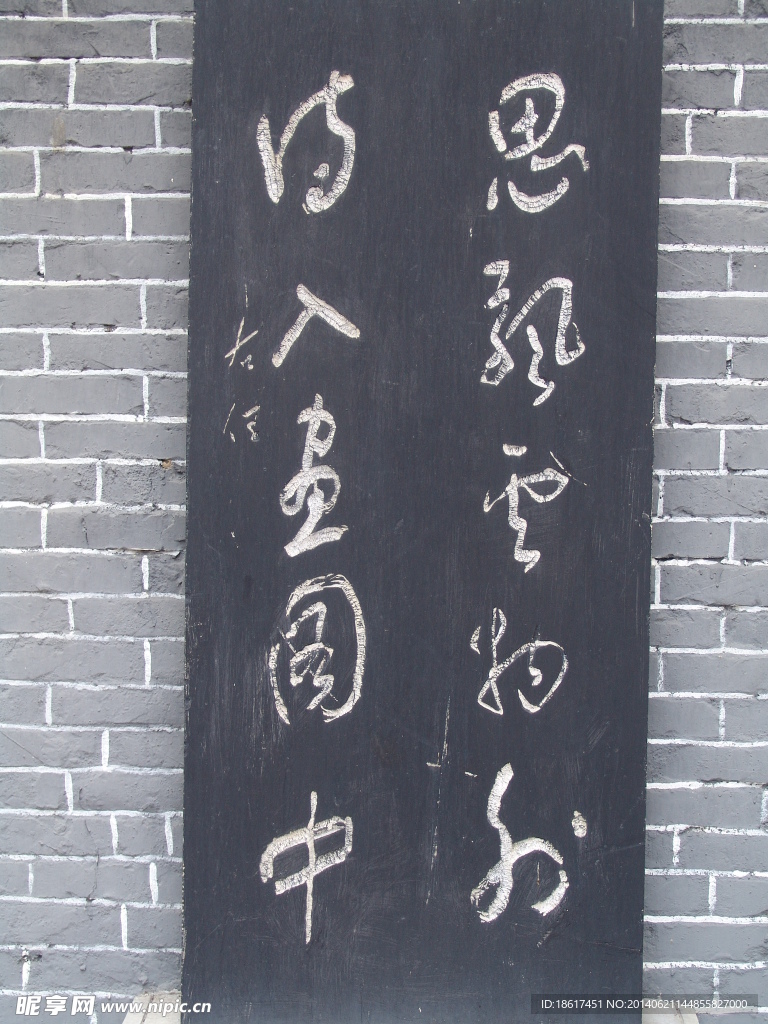 思飘云物外
诗入画图中
右任
昵享网 www.nipic.cn
ID:18617451 NO:20140621144855827000